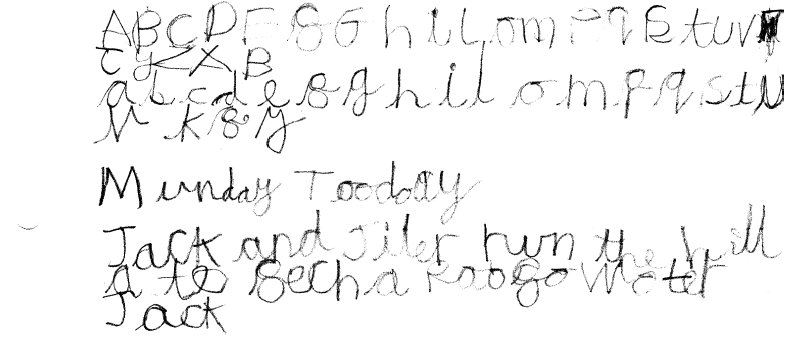 A B C D F 8 G h i L o m P q B t u v
t y K X B
a b c d e 8 g h i l o m p q s t u
N K 8 y
Munday Toodoay
Jack and Jiler run the hill
a to 8ech a water
Jack